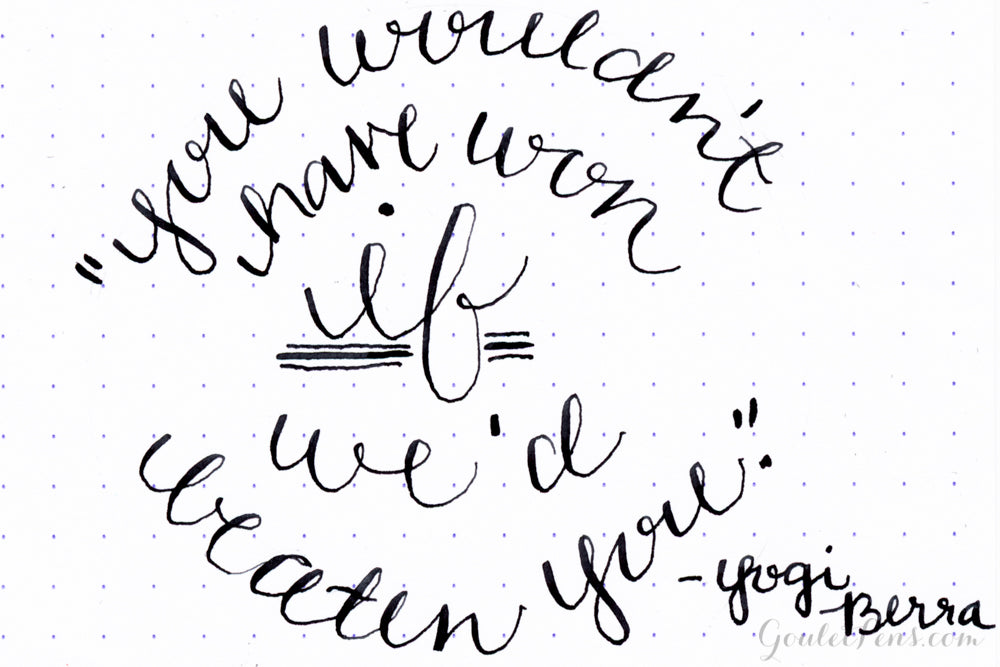 "you wouldn't
have won
if
we'd
beaten you".
-yogi
Berra
GouletPens.com